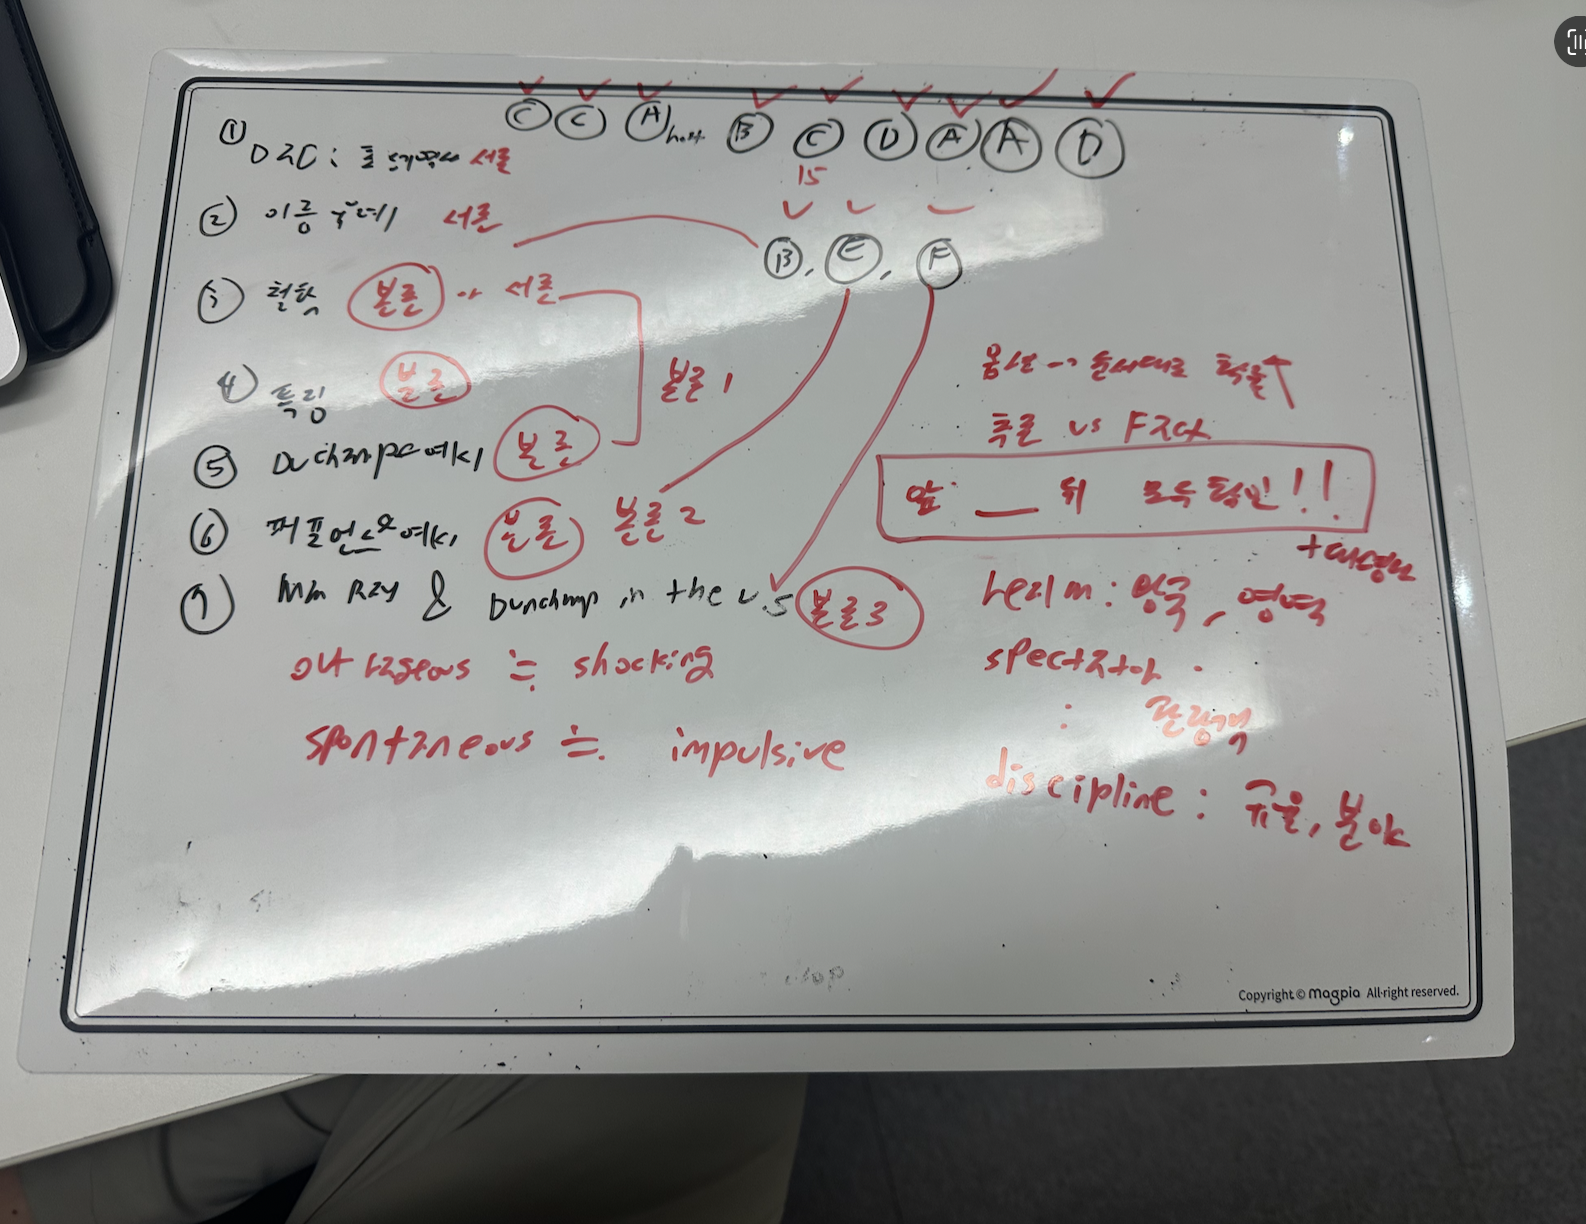 ✓ ✓ ✓ ✓ ✓ ✓ ✓ ✓ ✓
Ⓒ Ⓒ Ⓐ Ⓑ Ⓒ Ⓓ Ⓐ Ⓐ Ⓓ
15
Ⓑ, Ⓔ, Ⓕ
① 서론
② 이름 유래 서론
③ 철학 본론 → 서론
④ 특징 본론
본론 1
⑤ Duchamp 예시 본론
⑥ 퍼포먼스 예시 본론 본론 2
⑦ Man Ray & Dunchmp in the U.S 본론 3
outrageous ≒ shocking
spontaneous ≒ impulsive
옵션 → 순서대로 확률 ↑
추론 vs Fact
앞 __ 뒤 모두 확인!!
+ 대명사
realm : 왕국, 영역
spectator
: 관람객
discipline : 규율, 분야
Copyright © Magpia All·right reserved.